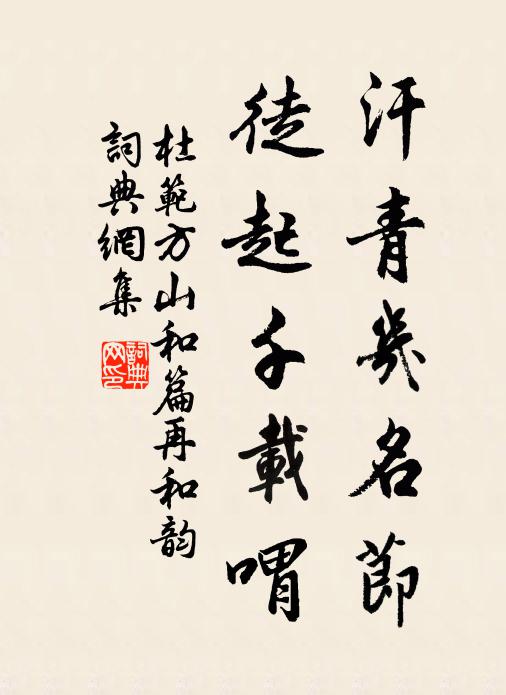 汗青幾名節
徒起千載喟
杜範方山和篇再和韵
詞典網集
詞典網印